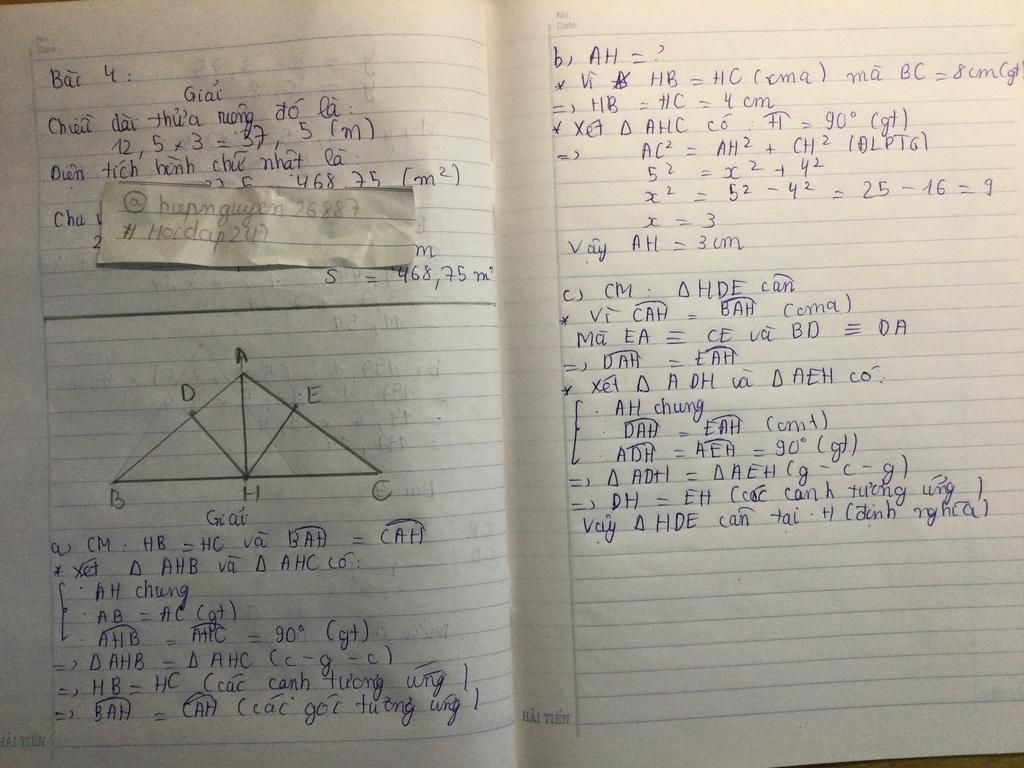 No.
Date
Bài 4:
Giải
Chiều dài thửa ruộng đó là:
12,5 × 3 = 37,5 (m)
Diện tích hình chữ nhật là:
468,75 (m²)
Chu
@ hiepnguyen26887
# Hoidap247
2
m
S = 468,75 m²
A
D
E
B
H
C
Giải
a, CM: HB = HC và BAH = CAH
* Xét Δ AHB và Δ AHC có:
. AH chung
. AB = AC (gt)
. AHB = AHC = 90° (gt)
=> Δ AHB = Δ AHC (c-g-c)
=> HB = HC (các cạnh tương ứng)
=> BAH = CAH (các góc tương ứng)
HẢI TIẾN
No.
Date
b, AH = ?
* Vì HB = HC (cma) mà BC = 8cm (gt)
=> HB = HC = 4 cm
* Xét Δ AHC có: H = 90° (gt)
=> AC² = AH² + CH² (ĐLPTG)
5² = x² + 4²
x² = 5² - 4² = 25 - 16 = 9
x = 3
Vậy AH = 3cm
c, CM: Δ HDE cân
* Vì CAH = BAH (cma)
Mà EA ≡ CE và BD ≡ DA
=> DAH = EAH
* Xét Δ ADH và Δ AEH có:
. AH chung
. DAH = EAH (cmt)
. ADH = AEA = 90° (gt)
=> Δ ADH = Δ AEH (g-c-g)
=> DH = EH (các cạnh tương ứng)
Vậy Δ HDE cân tại H (định nghĩa)
HẢI TIẾN